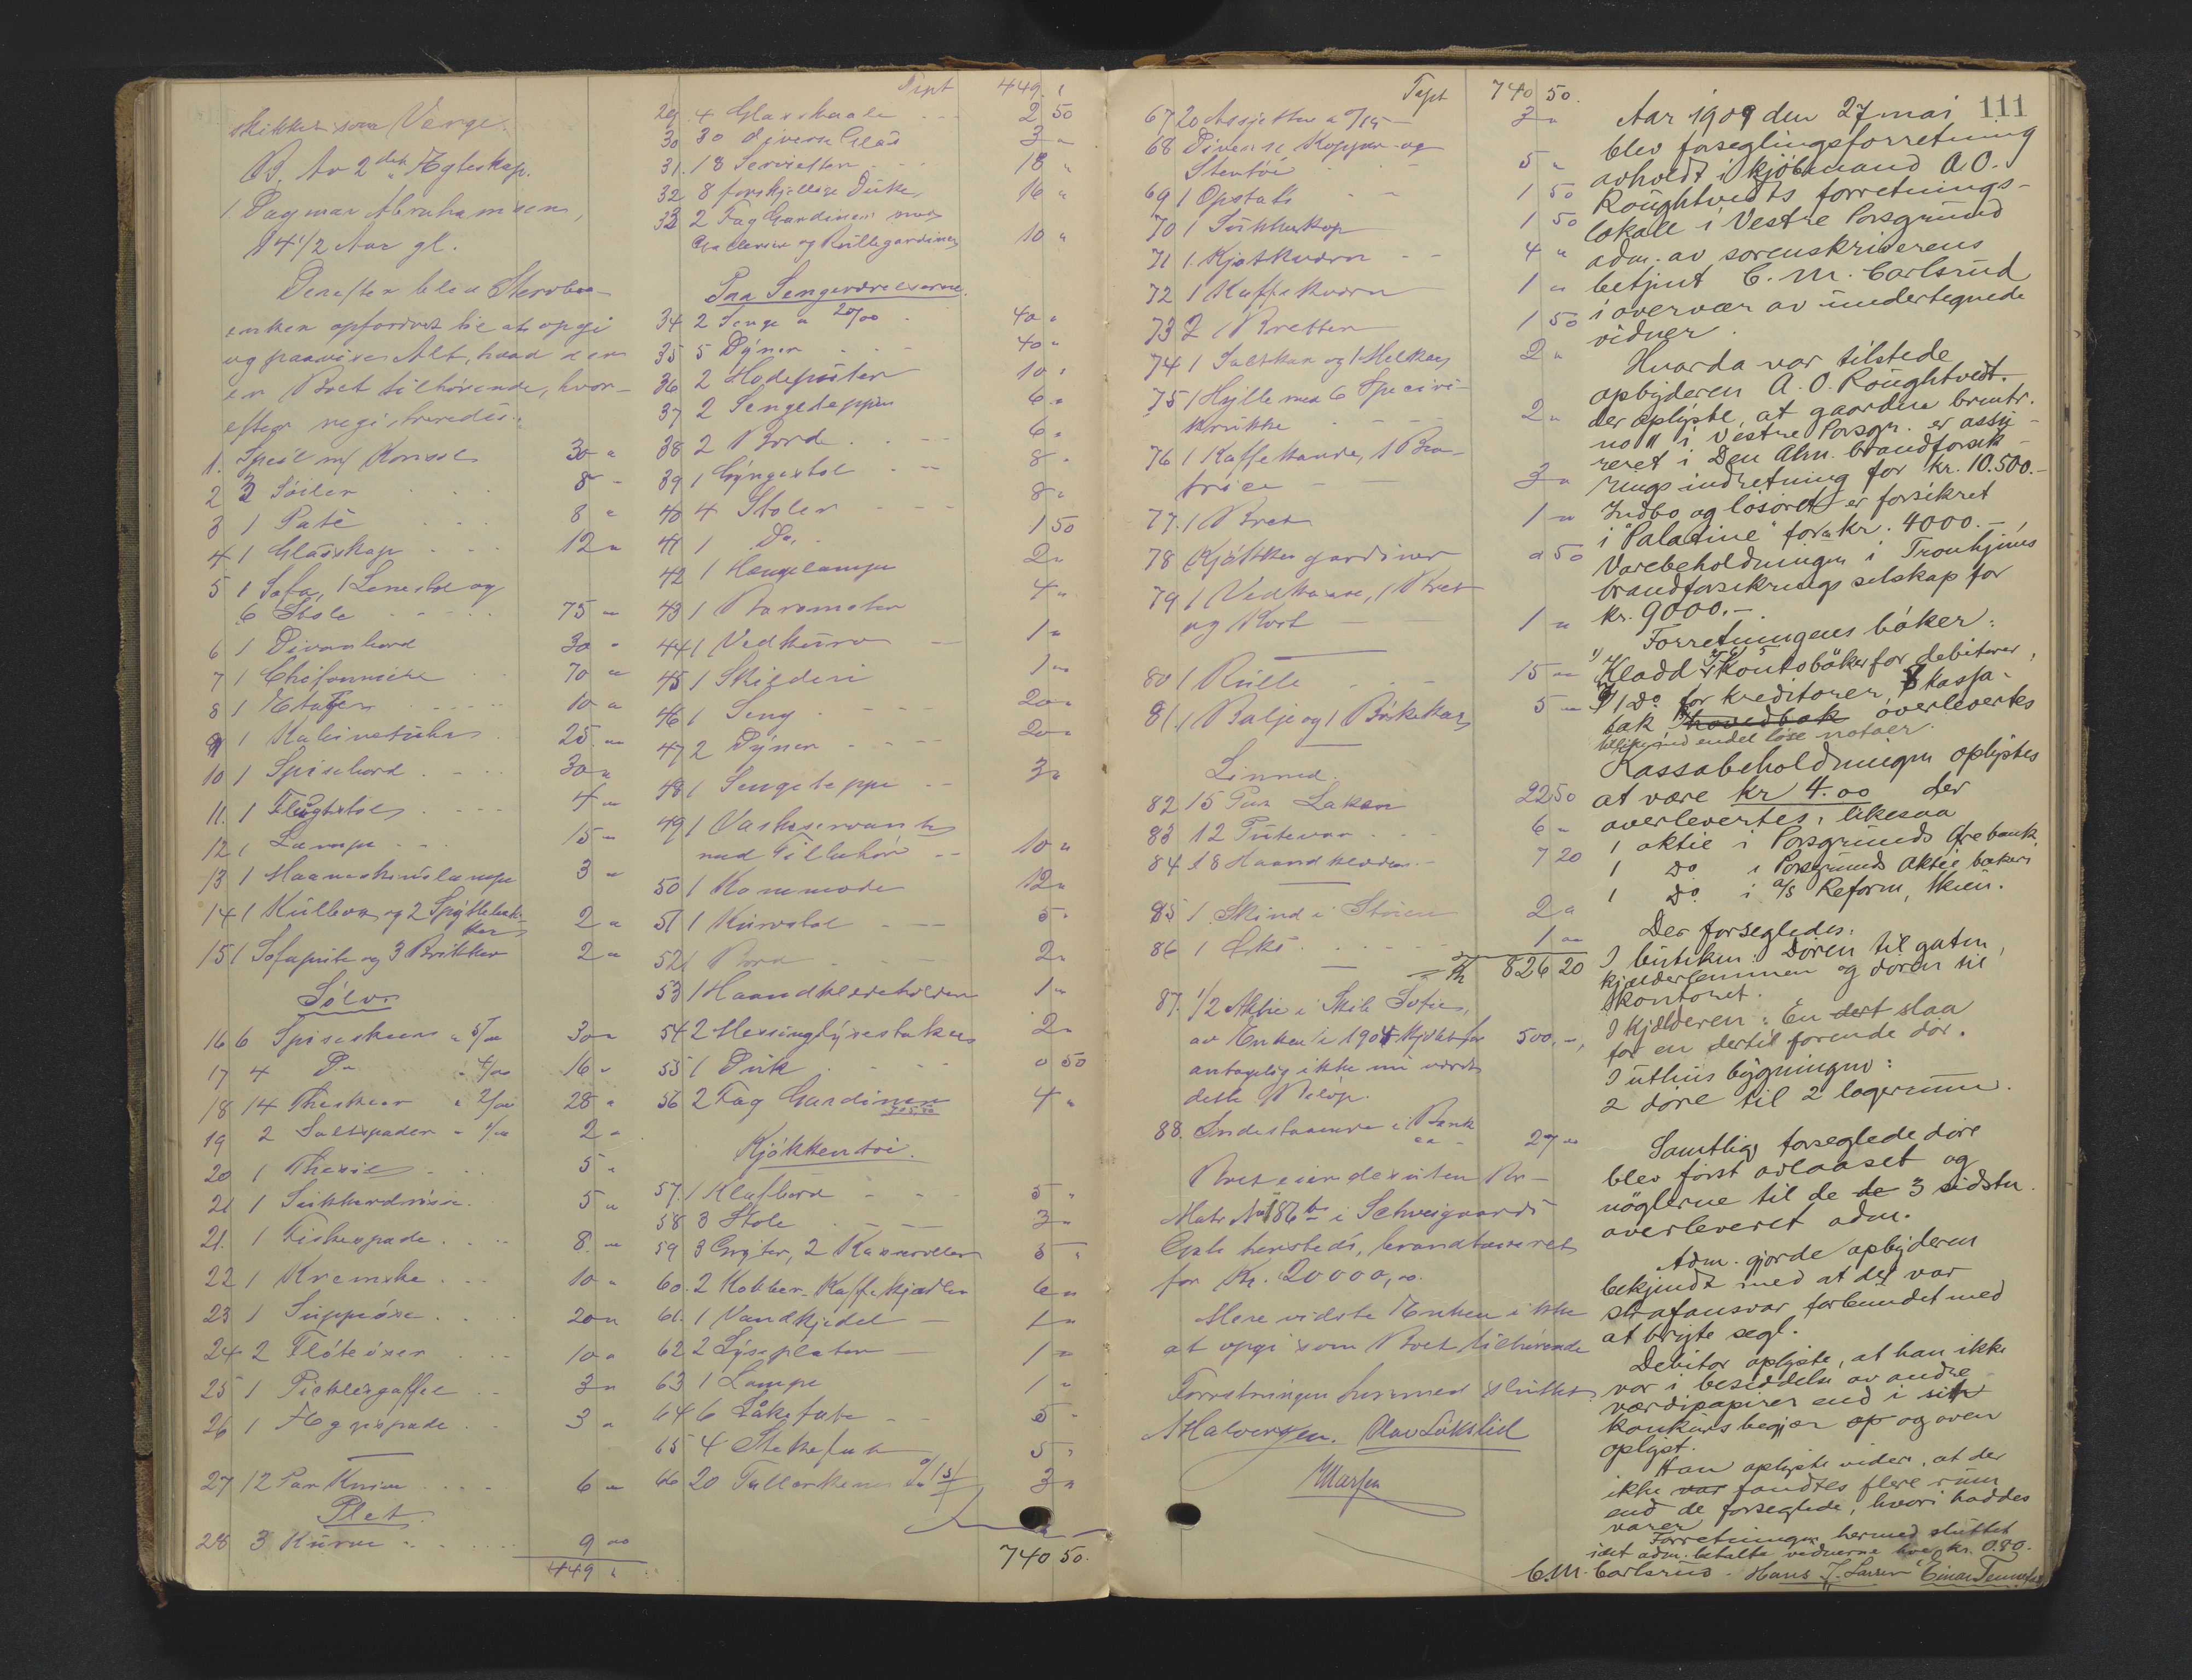 skikket som Værge.
B. Av 2det Ægteskap.
1. Dagmar Abrahamsen,
14 1/2 Aar gl.
Derefter blev Stervbo-
enken opfordret til at opgi
og paavise Alt, hvad der
er Boet tilhørende, hvor-
efter registreredes:
1. Speil m/ Konsol 30 "
2 2 Søiler 8 "
3 1 Paté 8 "
4 1 Glasskap 12 "
5 1 Sofa, 1 Lenestol og
6 Stole 75 "
6 1 Divanbord 30 "
7 1 Chifonniere 70 "
8 1 Etager 10 "
9 1 Kabinetuhr 25 "
10 1 Spisebord 30 "
11. 1 Fløgtstol 4 "
12 1 Lampe 15 "
13 1 Maaneskinslampe 3 "
14 1 Kulbox og 2 Spyttebak-
ker 2 "
15 1 Sofapute og 3 Brikker 2 "
Sølv.
16 6 Spiseskeer a 5/00 30 "
17 4 Do a 4/00 16 "
18 14 Theskeer a 2/00 28 "
19 2 Saltspader a 1/00 2 "
20 1 Thesil 5 "
21 1 Sukkerdrøsse 5 "
21. 1 Fiskespade 8 "
22 1 Kremske 10 "
23 1 Suppeøse 20 "
24 2 Fløteøser 10 "
25 1 Picklesgaffel 3 "
26 1 Æggespade 3 "
27 12 Par Knive 6 "
Plet.
28 3 Kurve 9 00
449 "
Trpt 449. "
29. 4 Glasskaale 2 50
30 30 diverse Glas 3 "
31. 18 Servietter 18 "
32 8 forskjellige Duke 16 "
33 2 Fag Gardiner med
Gallerier og Rullegardiner 10 "
Paa Sengeværelserne.
34 2 Senge a 20/00 40 "
35 5 Dyner 40 "
36 2 Hodeputer 10 "
37 2 Sengetepper 6 "
38 2 Bord 6 "
39 1 Gyngestol 8 "
40 4 Stoler 8 "
41 1 Do. 1 50
42 1 Hængelampe 2 "
43 1 Barometer 4 "
44 1 Vedkurv 1 "
45 1 Skilderi 1 "
46 1 Seng 20 "
47 2 Dyner 20 "
48 1 Sengeteppe 3 "
49 1 Vaskeservante
med Tilbehør 10 "
50 1 Kommode 12 "
51 1 Kurvstol 5 "
52 1 Bord 2 "
53 1 Haandklædeholder 1 "
54 2 Messinglysestaker 2 "
55 1 Duk 0 50
56 2 Fag Gardiner 4 "
Kjøkkentøi.
57. 1 Klafbord 5 "
58 3 Stole 3 "
59 3 Gryter, 2 Kasseroller 5 "
60. 2 Kobber-Kaffekjedler 6 "
61. 1 Vandkjedel 1 "
62 2 Lyseplater 1 "
63 1 Lampe 1 "
64 6 Kakefate 5 "
65 4 Stekefat 5 "
66 20 Tallerkener a 0/15 3 "
740 50.
Trpt 740 50.
67 20 Assjetter a 0/15 3 "
68 Diverse Kopper og
Stentøi 5 "
69 1 Opstats 1 50
70 1 Sukkerkop 1 50
71 1. Kjøtkværn 4 "
72 1 Kaffekværn 1 "
73 2 Bretter 1 50
74 1 Saltkar og 1 Melkar 2 "
75 1 Hylle med 6 Speceri-
krukke 2 "
76 1 Kaffekande, 1 Bea-
trice 3 "
77. 1 Bret 1 "
78 Kjøkkengardiner 0 50
79 1 Vedkasse, 1 Bret
og Kost 1 "
80 1 Rulle 15 "
81 1 Balje og 1 Børkekar 5 "
Linned.
82 15 Par Laken 22 50
83 12 Putevar 6 "
84 18 Haandklæder 7 20
85 1. Skind i Stuen 2 "
86 1 Øks 1 "
Kr 826 20
87. 1/2 Aktie i Skib Sofie,
av Enken i 1904 kjøbt for 500.-,
antagelig ikke nu værdt
dette Beløp.
88. Indestaaende i Bank
ca 27 "
Boet eier desuten Br-
Matr No 186 b i Schweigaards
Gate hersteds, brandtaxeret
for Kr. 20000,00.
Mere vidste Enken ikke
at opgi som Boet tilhørende
Forretningen hermed sluttet
M Halvorsen. Olav Lökslid
111
Aar 1909 den 27 mai
blev forseglingsforretning
avholdt i kjøbmand A O.
Roughtvedts forretnings-
lokale i Vestre Porsgrund
adm. av sorenskriverens
betjent C. M. Carlsrud
i overvær av undertegnede
vidner.
Hvorda var tilstede
opbyderen A. O. Roughtvedt.
der oplyste, at gaarden brmtr.
no 11 i Vestre Porsgr. er assu-
reret i Den Alm. brandforsik-
rings indretning for kr. 10.500.-
Indbo og løsøret er forsikret
i "Palatine" for kr. 4000.-,
Varebeholdningen i Tronhjems
brandforsikrings selskap for
kr. 9000.-
Forretningens bøker:
Kladd, kontobøker for debitorer,
1 do for kreditorer, kassa-
bok, hovedbok overlevertes
tillikemed endel løse notaer.
Kassabeholdningen oplystes
at være kr 4.00 der
overlevertes, likesaa
1 aktie i Porsgrunds Ørebank
1 do i Porsgrunds Aktie bakeri
1 do. i a/s Reform, Skien.
Der forsegledes:
I butiken: Døren til gaten,
kjælderlemmen og døren til
kontoret.
I kjælderen: En dert slaa
for en dertil førende dør.
I uthusbygningen:
2 døre til 2 lagerrum.
Samtlige forseglede døre
blev først avlaaset og
nøglerne til de de 3 sidste
overleveret adm.
Adm. gjorde opbyderen
bekjendt med at det var
strafansvar forbundet med
at bryte segl.
Debitor oplyste, at han ikke
var i besiddelse av andre
værdipapirer end i sit
konkursbegjær op og oven
oplyst.
Han oplyste videre, at der
ikke var fandtes flere rum
end de forseglede, hvori haddes
varer
Forretningen hermed sluttet
idet adm. betalte vidnerne hver kr. 0.80.
C. M. Carlsrud. Hans J. Larsen Einar